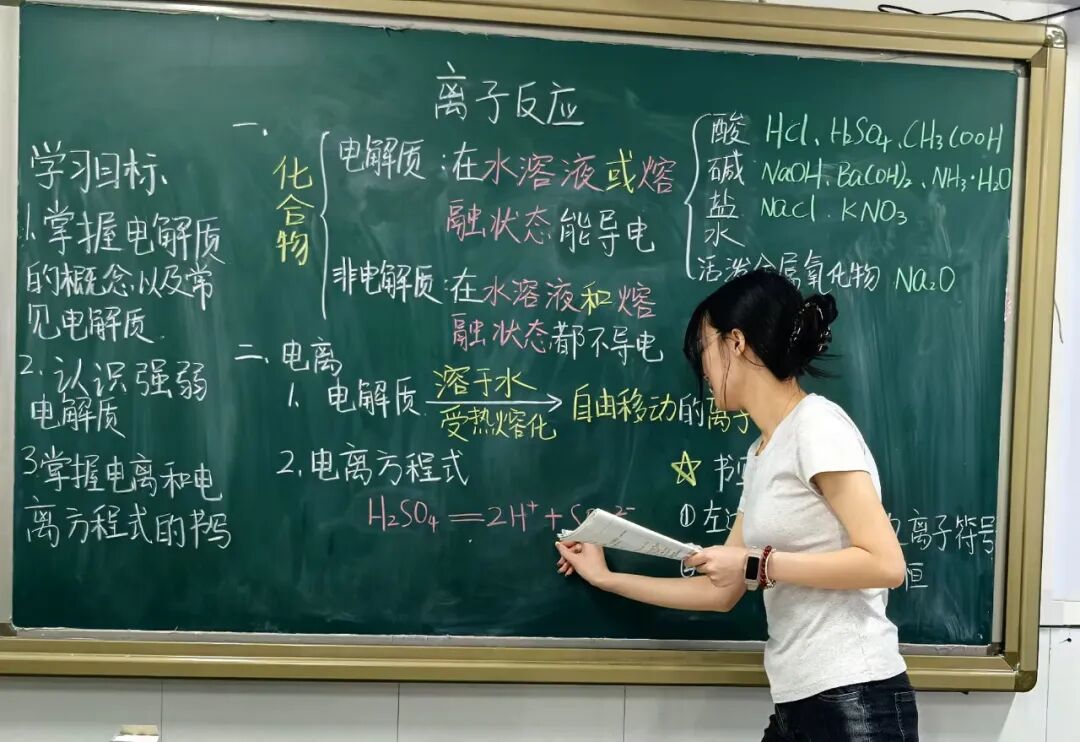 离子反应
学习目标、
1.掌握电解质
的概念以及常
见电解质.
2.认识强弱
电解质
3.掌握电离和电
离方程式的书写
一、
化合物
电解质:在水溶液或熔
融状态能导电
非电解质:在水溶液和熔
融状态都不导电
酸 HCl、H2SO4、CH3COOH
碱 NaOH、Ba(OH)2、NH3·H2O
盐 NaCl、KNO3
水
活泼金属氧化物 Na2O
二、电离
1、电解质 溶于水 受热熔化 自由移动的离子
2、电离方程式
H2SO4=2H⁺+
☆ 书
①左 离子符号
恒